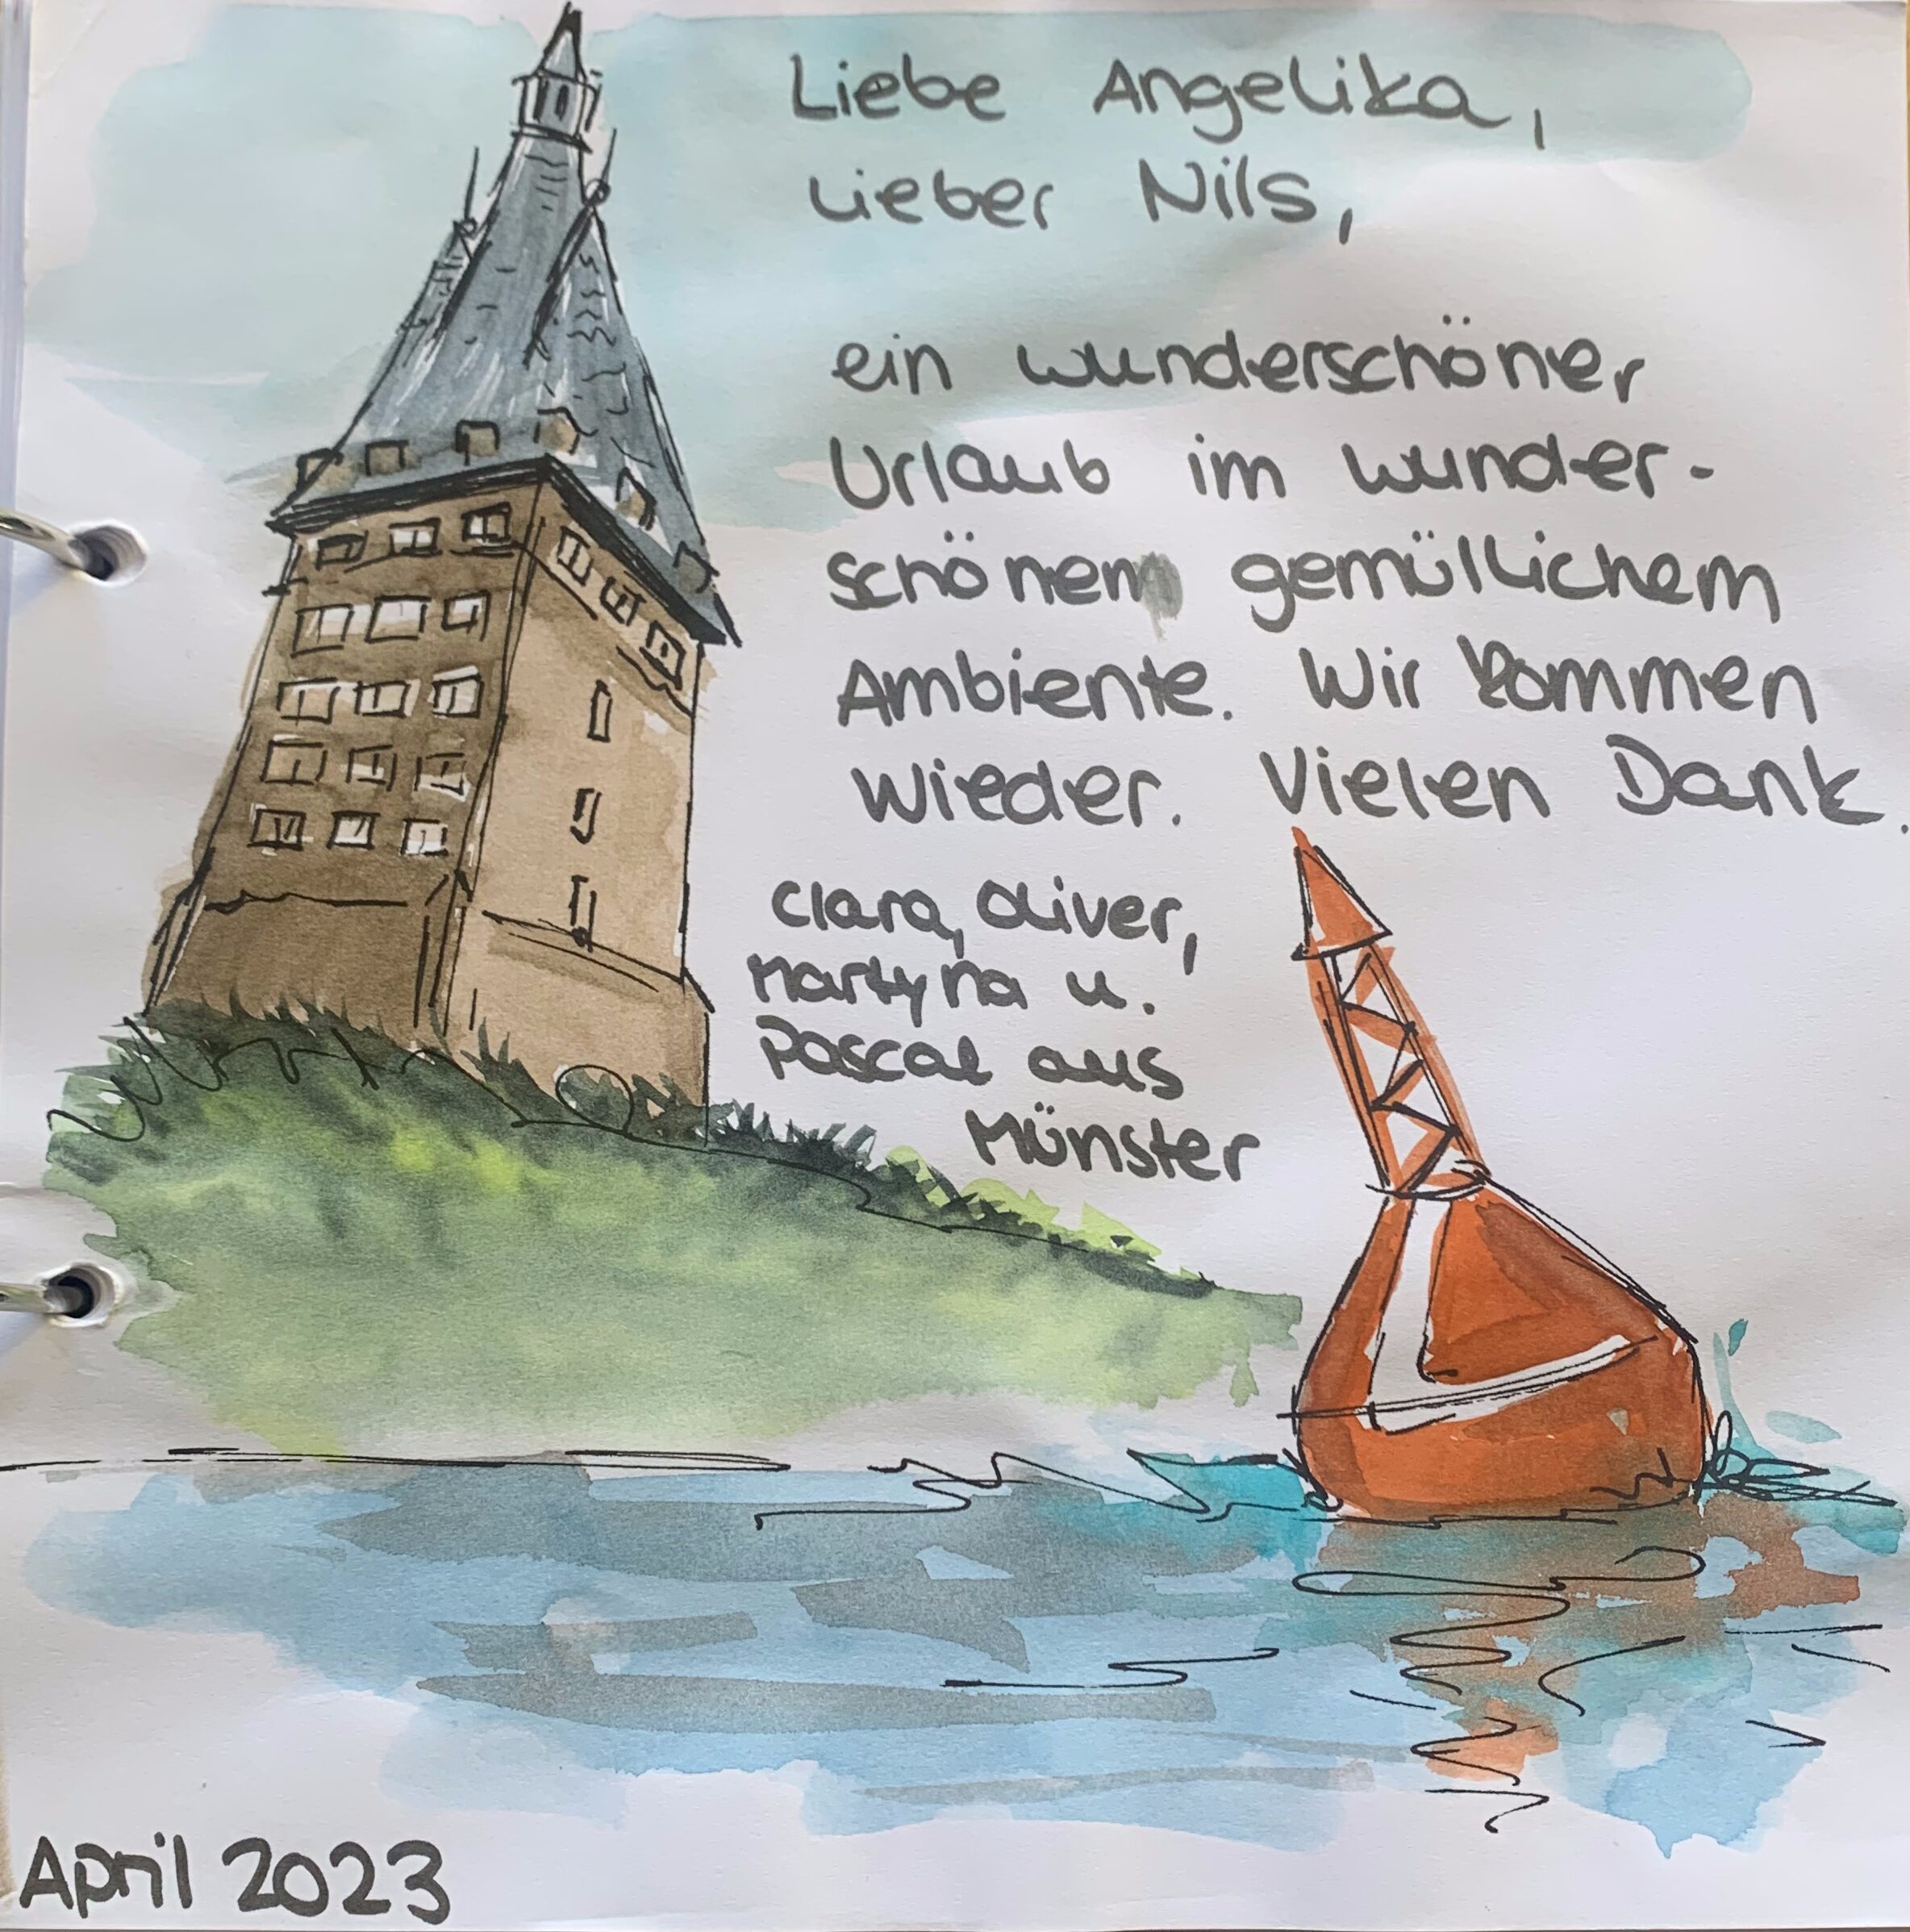 Liebe Angelika,
Lieber Nils,
ein wunderschöner
Urlaub im wunder-
schönen gemüllichem
Ambiente. Wir kommen
wieder. Vielen Dank.
Clara, Oliver,
Martyna u.
Pascal aus
Münster
April 2023